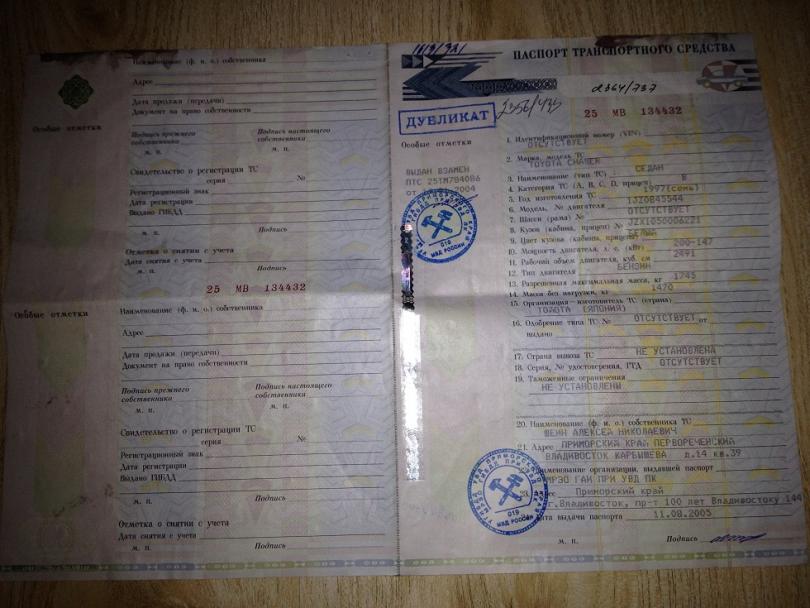 Наименование (ф. и. о.) собственника
Адрес
Дата продажи (передачи)
Документ на право собственности
Особые отметки
Подпись прежнего собственника
Подпись настоящего собственника
м. п.
м. п.
Свидетельство о регистрации ТС
серия №
Регистрационный знак
Дата регистрации
Выдано ГИБДД
м. п.
Подпись
Отметка о снятии с учета
Дата снятия с учета
м. п.
Подпись
25 МВ 134432
Особые отметки
Наименование (ф. и. о.) собственника
Адрес
Дата продажи (передачи)
Документ на право собственности
Подпись прежнего собственника
Подпись настоящего собственника
м. п.
м. п.
Свидетельство о регистрации ТС
серия №
Регистрационный знак
Дата регистрации
Выдано ГИБДД
м. п.
Подпись
Отметка о снятии с учета
Дата снятия с учета
м. п.
Подпись
ПАСПОРТ ТРАНСПОРТНОГО СРЕДСТВА
2364/737
2356/435
ДУБЛИКАТ
25 МВ 134432
Особые отметки
ВЫДАН ВЗАМЕН
ПТС 25ТМ784086
от 2004
1. Идентификационный номер (VIN)
ОТСУТСТВУЕТ
2. Марка, модель ТС
TOYOTA CHASER
3. Наименование (тип ТС) СЕДАН
4. Категория ТС (A, B, C, D, прицеп) B
5. Год изготовления ТС 1997(семь)
6. Модель, № двигателя 1JZ0845544
7. Шасси (рама) № ОТСУТСТВУЕТ
8. Кузов (кабина, прицеп) № JZX1050006221
9. Цвет кузова (кабины, прицепа) БЕЛЫЙ
10. Мощность двигателя, л. с. (кВт) 200-147
11. Рабочий объем двигателя, куб. см 2491
12. Тип двигателя БЕНЗИН
13. Разрешенная максимальная масса, кг 1745
14. Масса без нагрузки, кг 1470
15. Организация-изготовитель ТС (страна)
ТОЙОТА (ЯПОНИЯ)
16. Одобрение типа ТС № ОТСУТСТВУЕТ от
выдано
17. Страна вывоза ТС НЕ УСТАНОВЛЕНА
18. Серия, № удостоверения, ГТД ОТСУТСТВУЕТ
19. Таможенные ограничения
НЕ УСТАНОВЛЕНЫ
20. Наименование (ф. и. о.) собственника ТС
ШЕИН АЛЕКСЕЙ НИКОЛАЕВИЧ
21. Адрес ПРИМОРСКИЙ КРАЙ ПЕРВОРЕЧЕНСКИЙ
ВЛАДИВОСТОК КАРБЫШЕВА д.14 кв.39
Наименование организации, выдавшей паспорт
МРЭО ГАИ ПРИ УВД ПК
Приморский край
г.Владивосток, пр-т 100 лет Владивостоку 144
Дата выдачи паспорта 11.08.2005
м. п.
Подпись
019
МВД РОССИИ
019
МВД РОССИИ